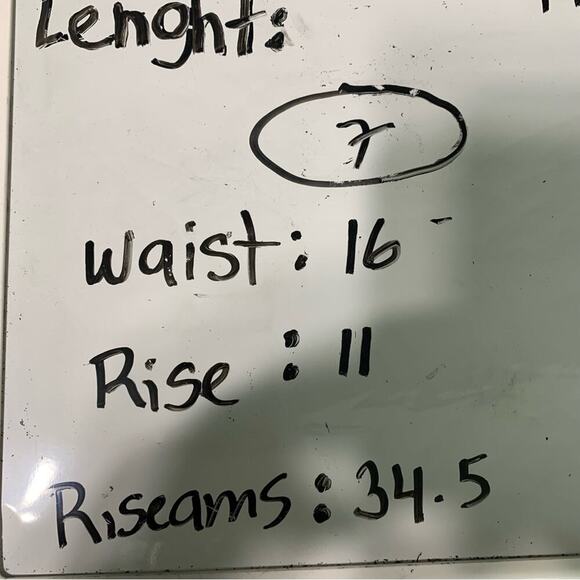 Lenght:
7
Waist: 16
Rise: 11
Riseams: 34.5